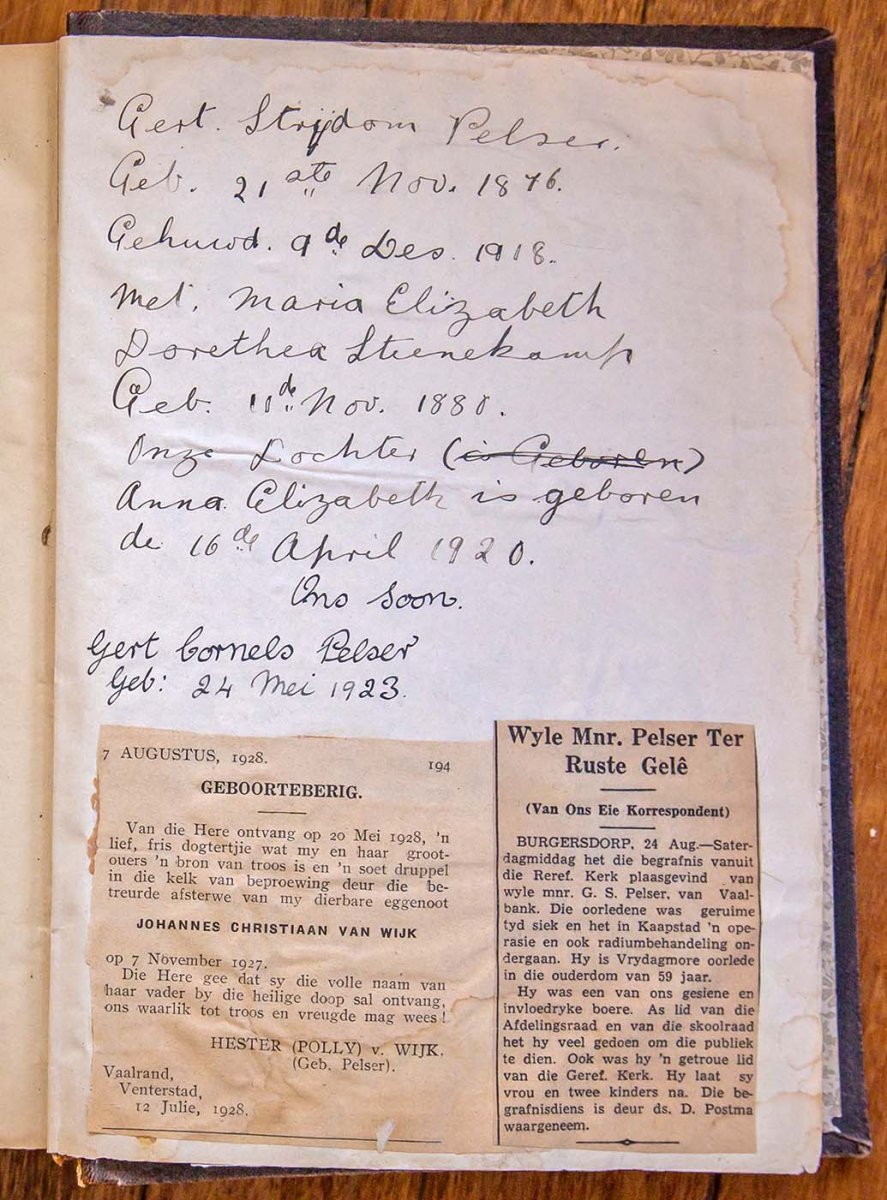 Gert. Strijdom Pelser.
Geb. 21ste Nov. 1876.
Gehuwd. 9de Des. 1918.
Met. Maria Elizabeth
Dorethea Stienekamp
Geb. 11de Nov. 1880.
Onze Dochter (is Geboren)
Anna Elizabeth is geboren
de 16de April 1920.
Ons soon.
Gert Cornels Pelser
Geb: 24 Mei 1923.
7 AUGUSTUS, 1928. 194
GEBOORTEBERIG.
Van die Here ontvang op 20 Mei 1928, 'n
lief, fris dogtertjie wat my en haar groot-
ouers 'n bron van troos is en 'n soet druppel
in die kelk van beproewing deur die be-
treurde afsterwe van my dierbare eggenoot
JOHANNES CHRISTIAAN VAN WIJK
op 7 November 1927.
Die Here gee dat sy die volle naam van
haar vader by die heilige doop sal ontvang,
ons waarlik tot troos en vreugde mag wees!
HESTER (POLLY) v. WIJK.
(Geb. Pelser).
Vaalrand,
Venterstad,
12 Julie, 1928.
Wyle Mnr. Pelser Ter
Ruste Gelê
(Van Ons Eie Korrespondent)
BURGERSDORP, 24 Aug.—Sater-
dagmiddag het die begrafnis vanuit
die Reref. Kerk plaasgevind van
wyle mnr. G. S. Pelser, van Vaal-
bank. Die oorledene was geruime
tyd siek en het in Kaapstad 'n ope-
rasie en ook radiumbehandeling on-
dergaan. Hy is Vrydagmore oorlede
in die ouderdom van 59 jaar.
Hy was een van ons gesiene en
invloedryke boere. As lid van die
Afdelingsraad en van die skoolraad
het hy veel gedoen om die publiek
te dien. Ook was hy 'n getroue lid
van die Geref. Kerk. Hy laat sy
vrou en twee kinders na. Die be-
grafnisdiens is deur ds. D. Postma
waargeneem.